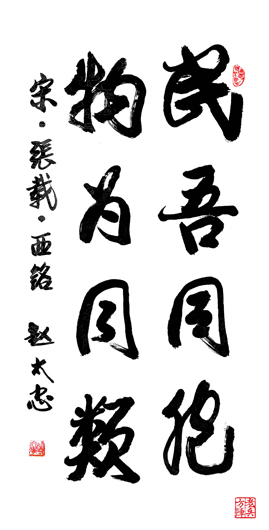 民吾同胞
物为同类
宋·張載·西銘 赵太忠